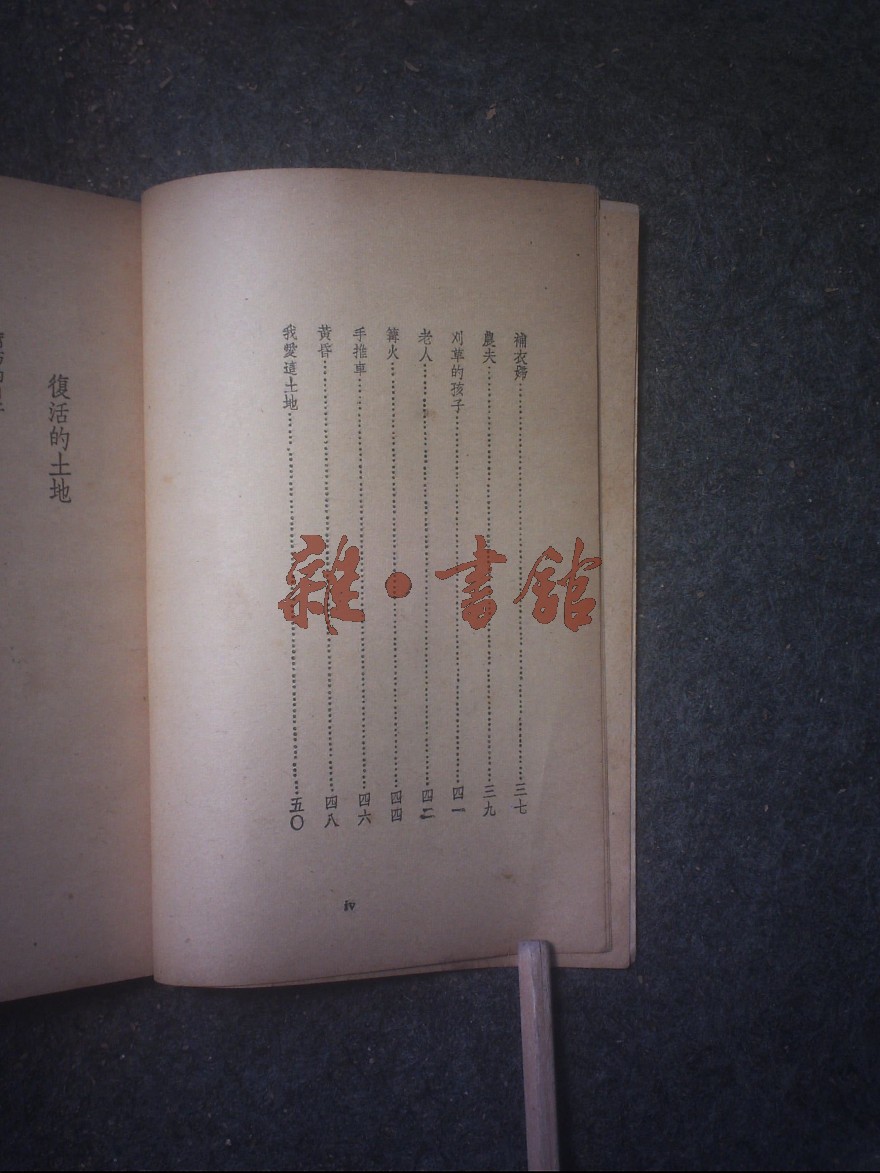 補衣婦……三七
農夫……三九
刈草的孩子……四一
老人……四二
篝火……四四
手推車……四六
黃昏……四八
我愛這土地……五〇
iv
復活的土地
雜·書館